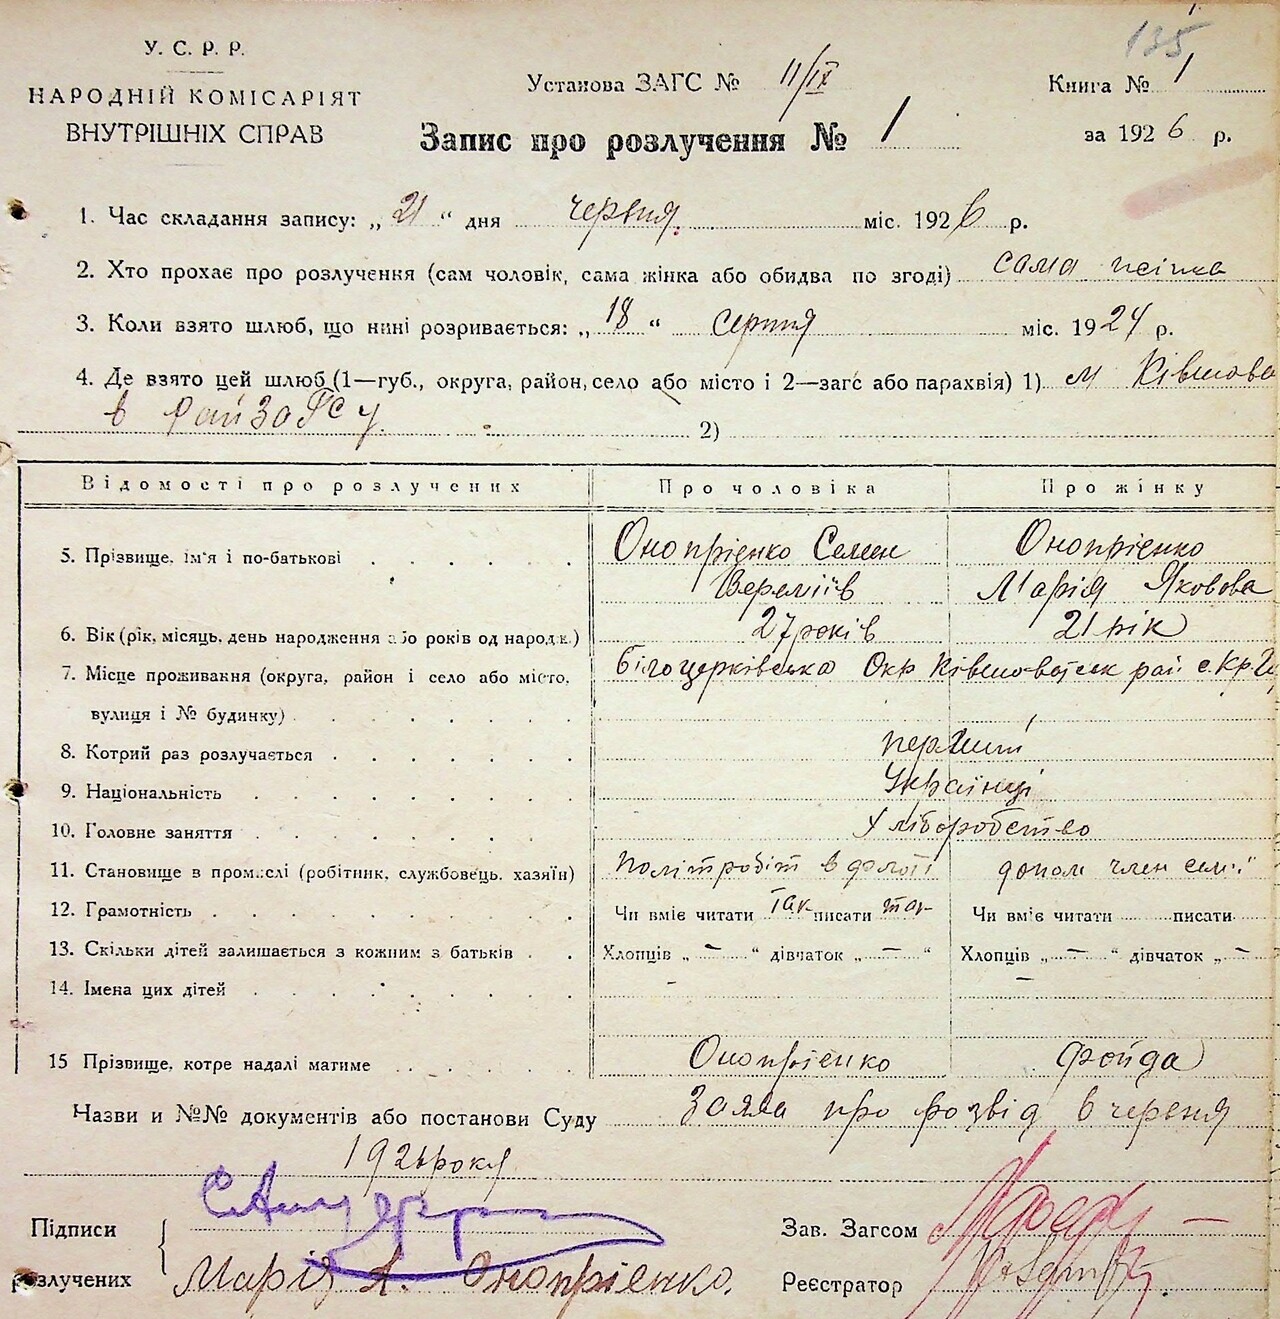 135
У. С. Р. Р.
НАРОДНІЙ КОМІСАРІЯТ
ВНУТРІШНІХ СПРАВ
Установа ЗАГС № 11/IX
Книга № 1
Запис про розлучення № 1
за 1926 р.
1. Час складання запису: „21“ дня червня міс. 1926 р.
2. Хто прохає про розлучення (сам чоловік, сама жінка або обидва по згоді) сама жінка
3. Коли взято шлюб, що нині розривається: „18“ серпня міс. 1924 р.
4. Де взято цей шлюб (1—губ., округа, район, село або місто і 2—загс або парахвія) 1) м Ківшова
в райЗагсу 2)
Відомості про розлучених Про чоловіка Про жінку
5. Прізвище, ім'я і по-батькові Онопрієнко Семен Онопрієнко
Веремїїв Марія Яковова
6. Вік (рік, місяць, день народження або років од народж.) 27 років 21 рік
7. Місце проживання (округа, район і село або місто, Білоцерківська Окр Ківшоватськ рай с. Кр.
вулиця і № будинку)
8. Котрий раз розлучається перший
9. Національність Українці
10. Головне заняття Хліборобство
11. Становище в промислі (робітник, службовець, хазяїн) політробіт в флоті допом член семї
12. Грамотність Чи вміє читати так писати так Чи вміє читати писати
13. Скільки дітей залишається з кожним з батьків Хлопців „ — “ дівчаток „ — “ Хлопців „ — “ дівчаток „ —
14. Імена цих дітей —
15 Прізвище, котре надалі матиме Онопрієнко Фройда
Назви и №№ документів або постанови Суду Заява про розвід в червня
1926 року
Підписи
Зав. Загсом
розлучених Марія Я. Онопрієнко.
Реєстратор